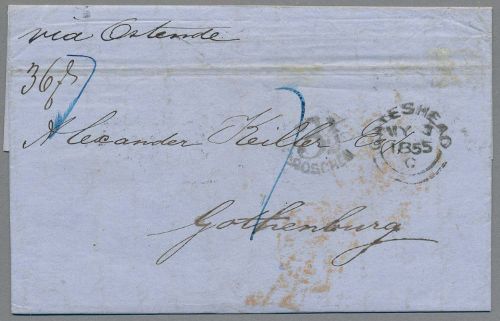 via Ostende
Alexander Keiller Esq
Gothenburg
GATESHEAD
MY 3
1855
C
GROSCHEN
7